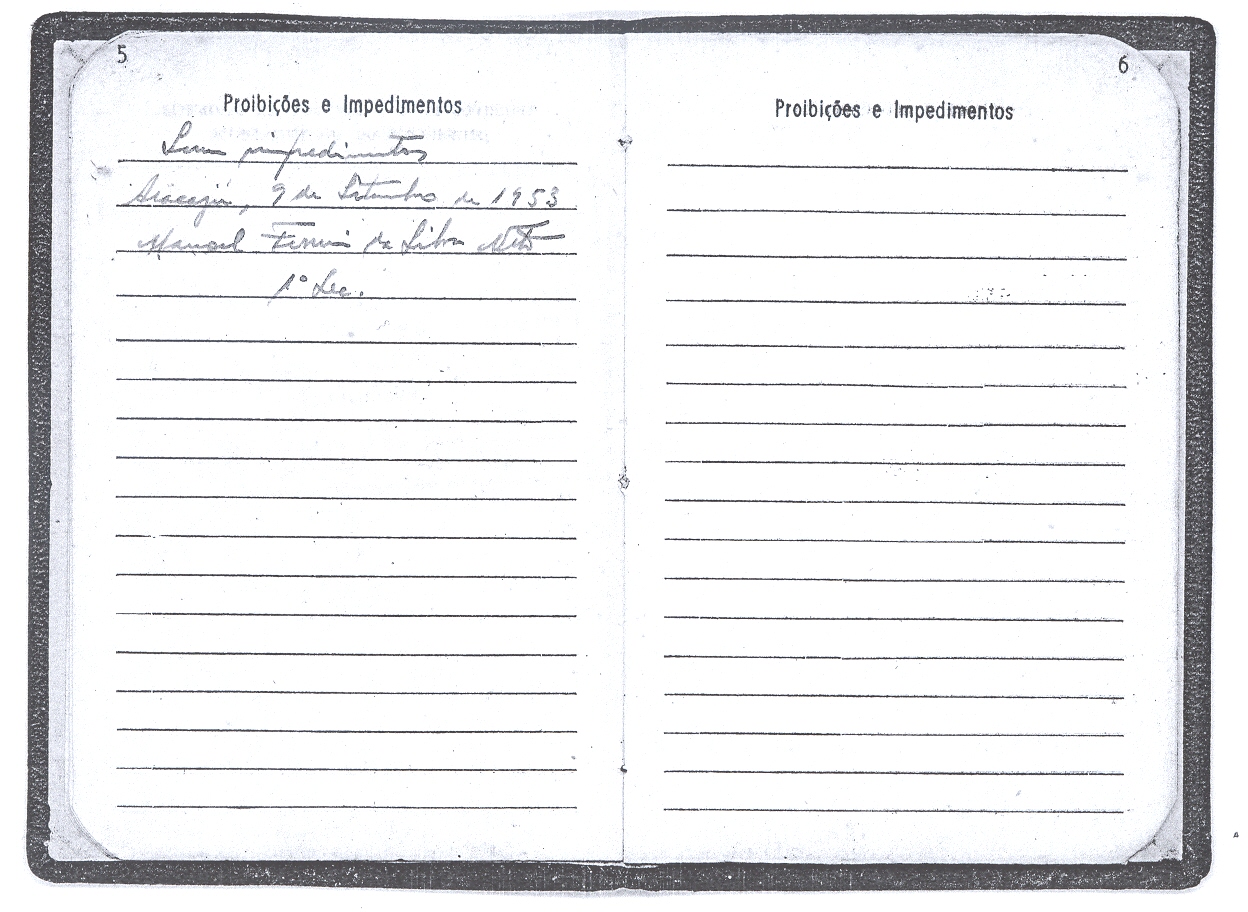 5
Proibições e Impedimentos
Sem impedimentos
Aracaju, 9 de Setembro de 1953
Manoel Ferreira da Silva Neto
1º Sec.
6
Proibições e Impedimentos